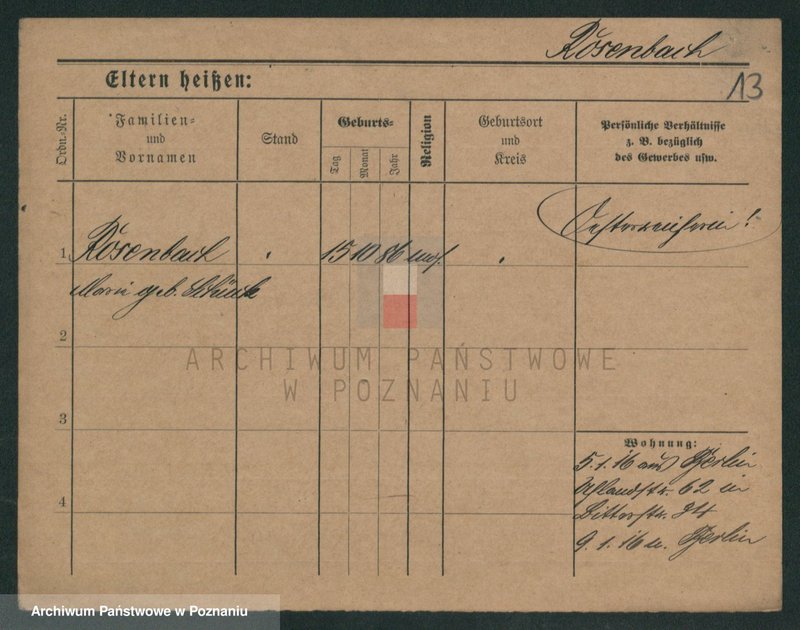 Rosenbach
13
Eltern heißen:
Ordn.-Nr.
Familien-
und
Vornamen
Stand
Geburts-
Tag
Monat
Jahr
Religion
Geburtsort
und
Kreis
Persönliche Verhältnisse
z. B. bezüglich
des Gewerbes usw.
1 Rosenbach 15 10 86 mos. Oesterreicherin!
Maria geb.
2
3
4
ARCHIWUM PAŃSTWOWE
W POZNANIU
Wohnung:
5.1.16 aus Berlin
Uhlandstr. 62 in
Ritterstr.
9.1.16 n. Berlin
Archiwum Państwowe w Poznaniu